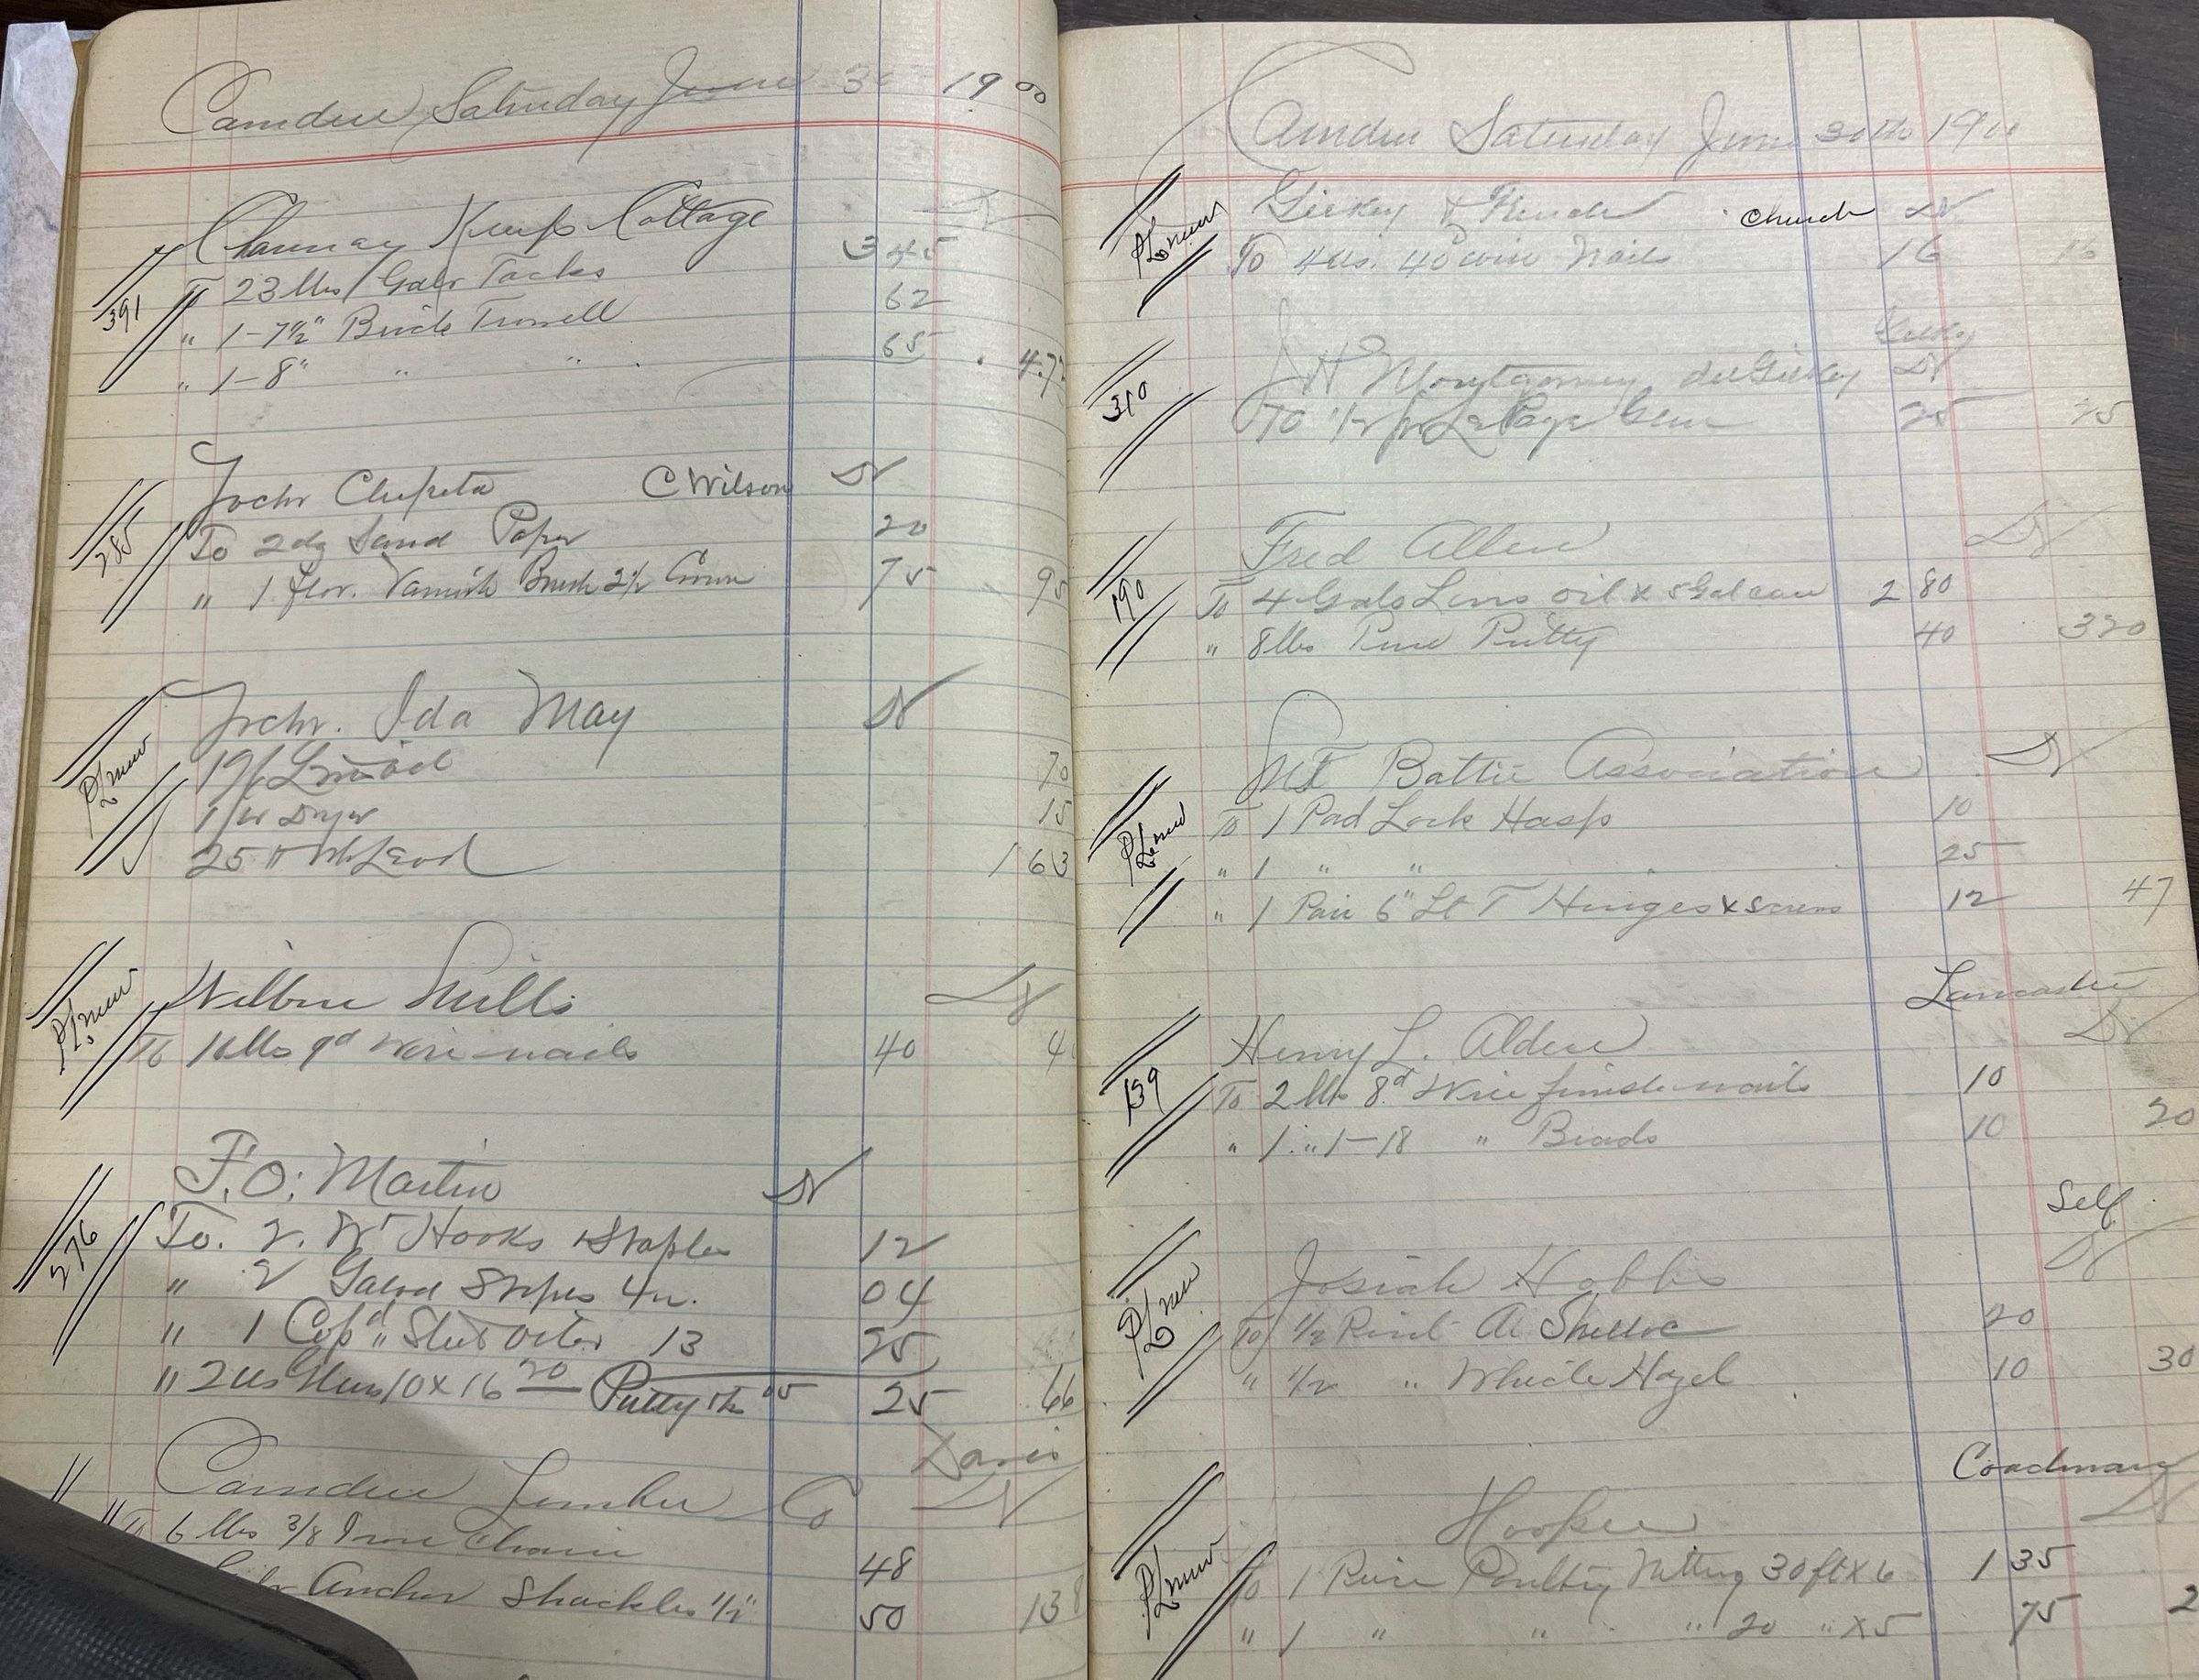 Camden Saturday June 30 1900
Dr
Chauncay Keep Cottage
391
To 23 lbs Galv Tacks 3 45
" 1-7½" Brick Trowell 62
" 1-8" " " 65 4.72
Schr Chepeta C Wilson Dr
285
To 2 dz Sand Paper 20
" 1 flor. Varnish Brush 2½ 75 95
Schr. Ida May Dr
P/L new
Lins oil 70
Dryer 15
25 # W. Lead 1 63
Wilbur Mills Dr
P/L new
To 16 lbs 9d Wire nails 40 4
F. O. Martin Dr
276
To. 2. Wt Hooks & Staples 12
" 2 Galvd Straps 4in. 04
" 1 Copd Steel Oiler 13 25
" 2 Lts Glass 10 x 16 20 Putty 1 lb 05 25 66
Davis
Camden Lumber Co Dr
To 6 lbs 3/8 Iron Chain 48
Galv Anchor Shackles ½" 50 138
Camden Saturday June 30th 1900
Church Dr
P/L new
To 4 lbs. 40d wire Nails 16 16
J H Montgomery del Gickey Dr
310
To ½ pt LePage Glue 25 25
Fred Allen Dr
190
To 4 Gals Lins Oil x 5 Gal can 2 80
" 8 lbs Pure Putty 40 320
Mt Battie Association Dr
P/L new
To 1 Pad Lock Hasp 10
" 1 " " 25
" 1 Pair 6" Lt T Hinges x screws 12 47
Lancaster
Henry L. Alden Dr
139
To 2 lbs 8d Wire finish nails 10
" 1 " 1-18 " Brads 10 20
Self
Josiah Hobbs Dr
P/L new
To ½ Pint A. Shellac 20
" ½ " Which Hazel 10 30
Coachman
Hooper Dr
P/L new
To 1 Piece Poultry Netting 30 ft x 6 1 35
" 1 " " " 20 " x 5 75 2